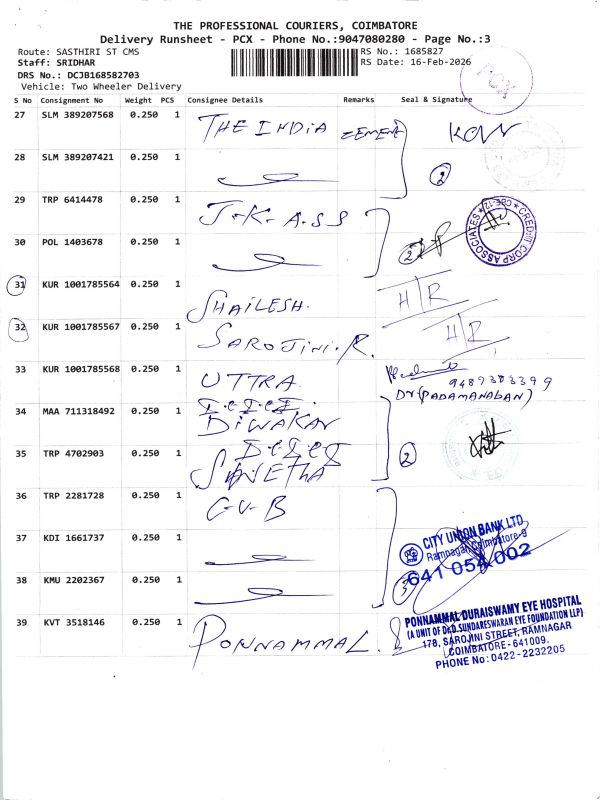 THE PROFESSIONAL COURIERS, COIMBATORE
Delivery Runsheet - PCX - Phone No.:9047080280 - Page No.:3
Route: SASTHIRI ST CMS
Staff: SRIDHAR
DRS No.: DCJB168582703
Vehicle: Two Wheeler Delivery
RS No.: 1685827
RS Date: 16-Feb-2026
PCX
S No Consignment No Weight PCS Consignee Details Remarks Seal & Signature
27 SLM 389207568 0.250 1 THE INDIA CEMENT
28 SLM 389207421 0.250 1 2
29 TRP 6414478 0.250 1 J-K-A-SS
CREDIT CORP ASSOCIATES * CBE-12 *
30 POL 1403678 0.250 1 2
31 KUR 1001785564 0.250 1 SHAILESH. H/R
32 KUR 1001785567 0.250 1 SAROJINI.R. H/R
33 KUR 1001785568 0.250 1 UTTRA
9487383399
Dr (PADAMANABAN)
34 MAA 711318492 0.250 1 DIWAKAR
35 TRP 4702903 0.250 1 2
36 TRP 2281728 0.250 1 C-U-B
37 KDI 1661737 0.250 1
CITY UNION BANK LTD
Ramnagar, Coimbatore-9
641 054 002
38 KMU 2202367 0.250 1 3
39 KVT 3518146 0.250 1 PONNAMMAL.
PONNAMMAL DURAISWAMY EYE HOSPITAL
(A UNIT OF Dr.D.SUNDARESWARAN EYE FOUNDATION LLP)
178, SAROJINI STREET, RAMNAGAR
COIMBATORE-641009.
PHONE No: 0422-2232205